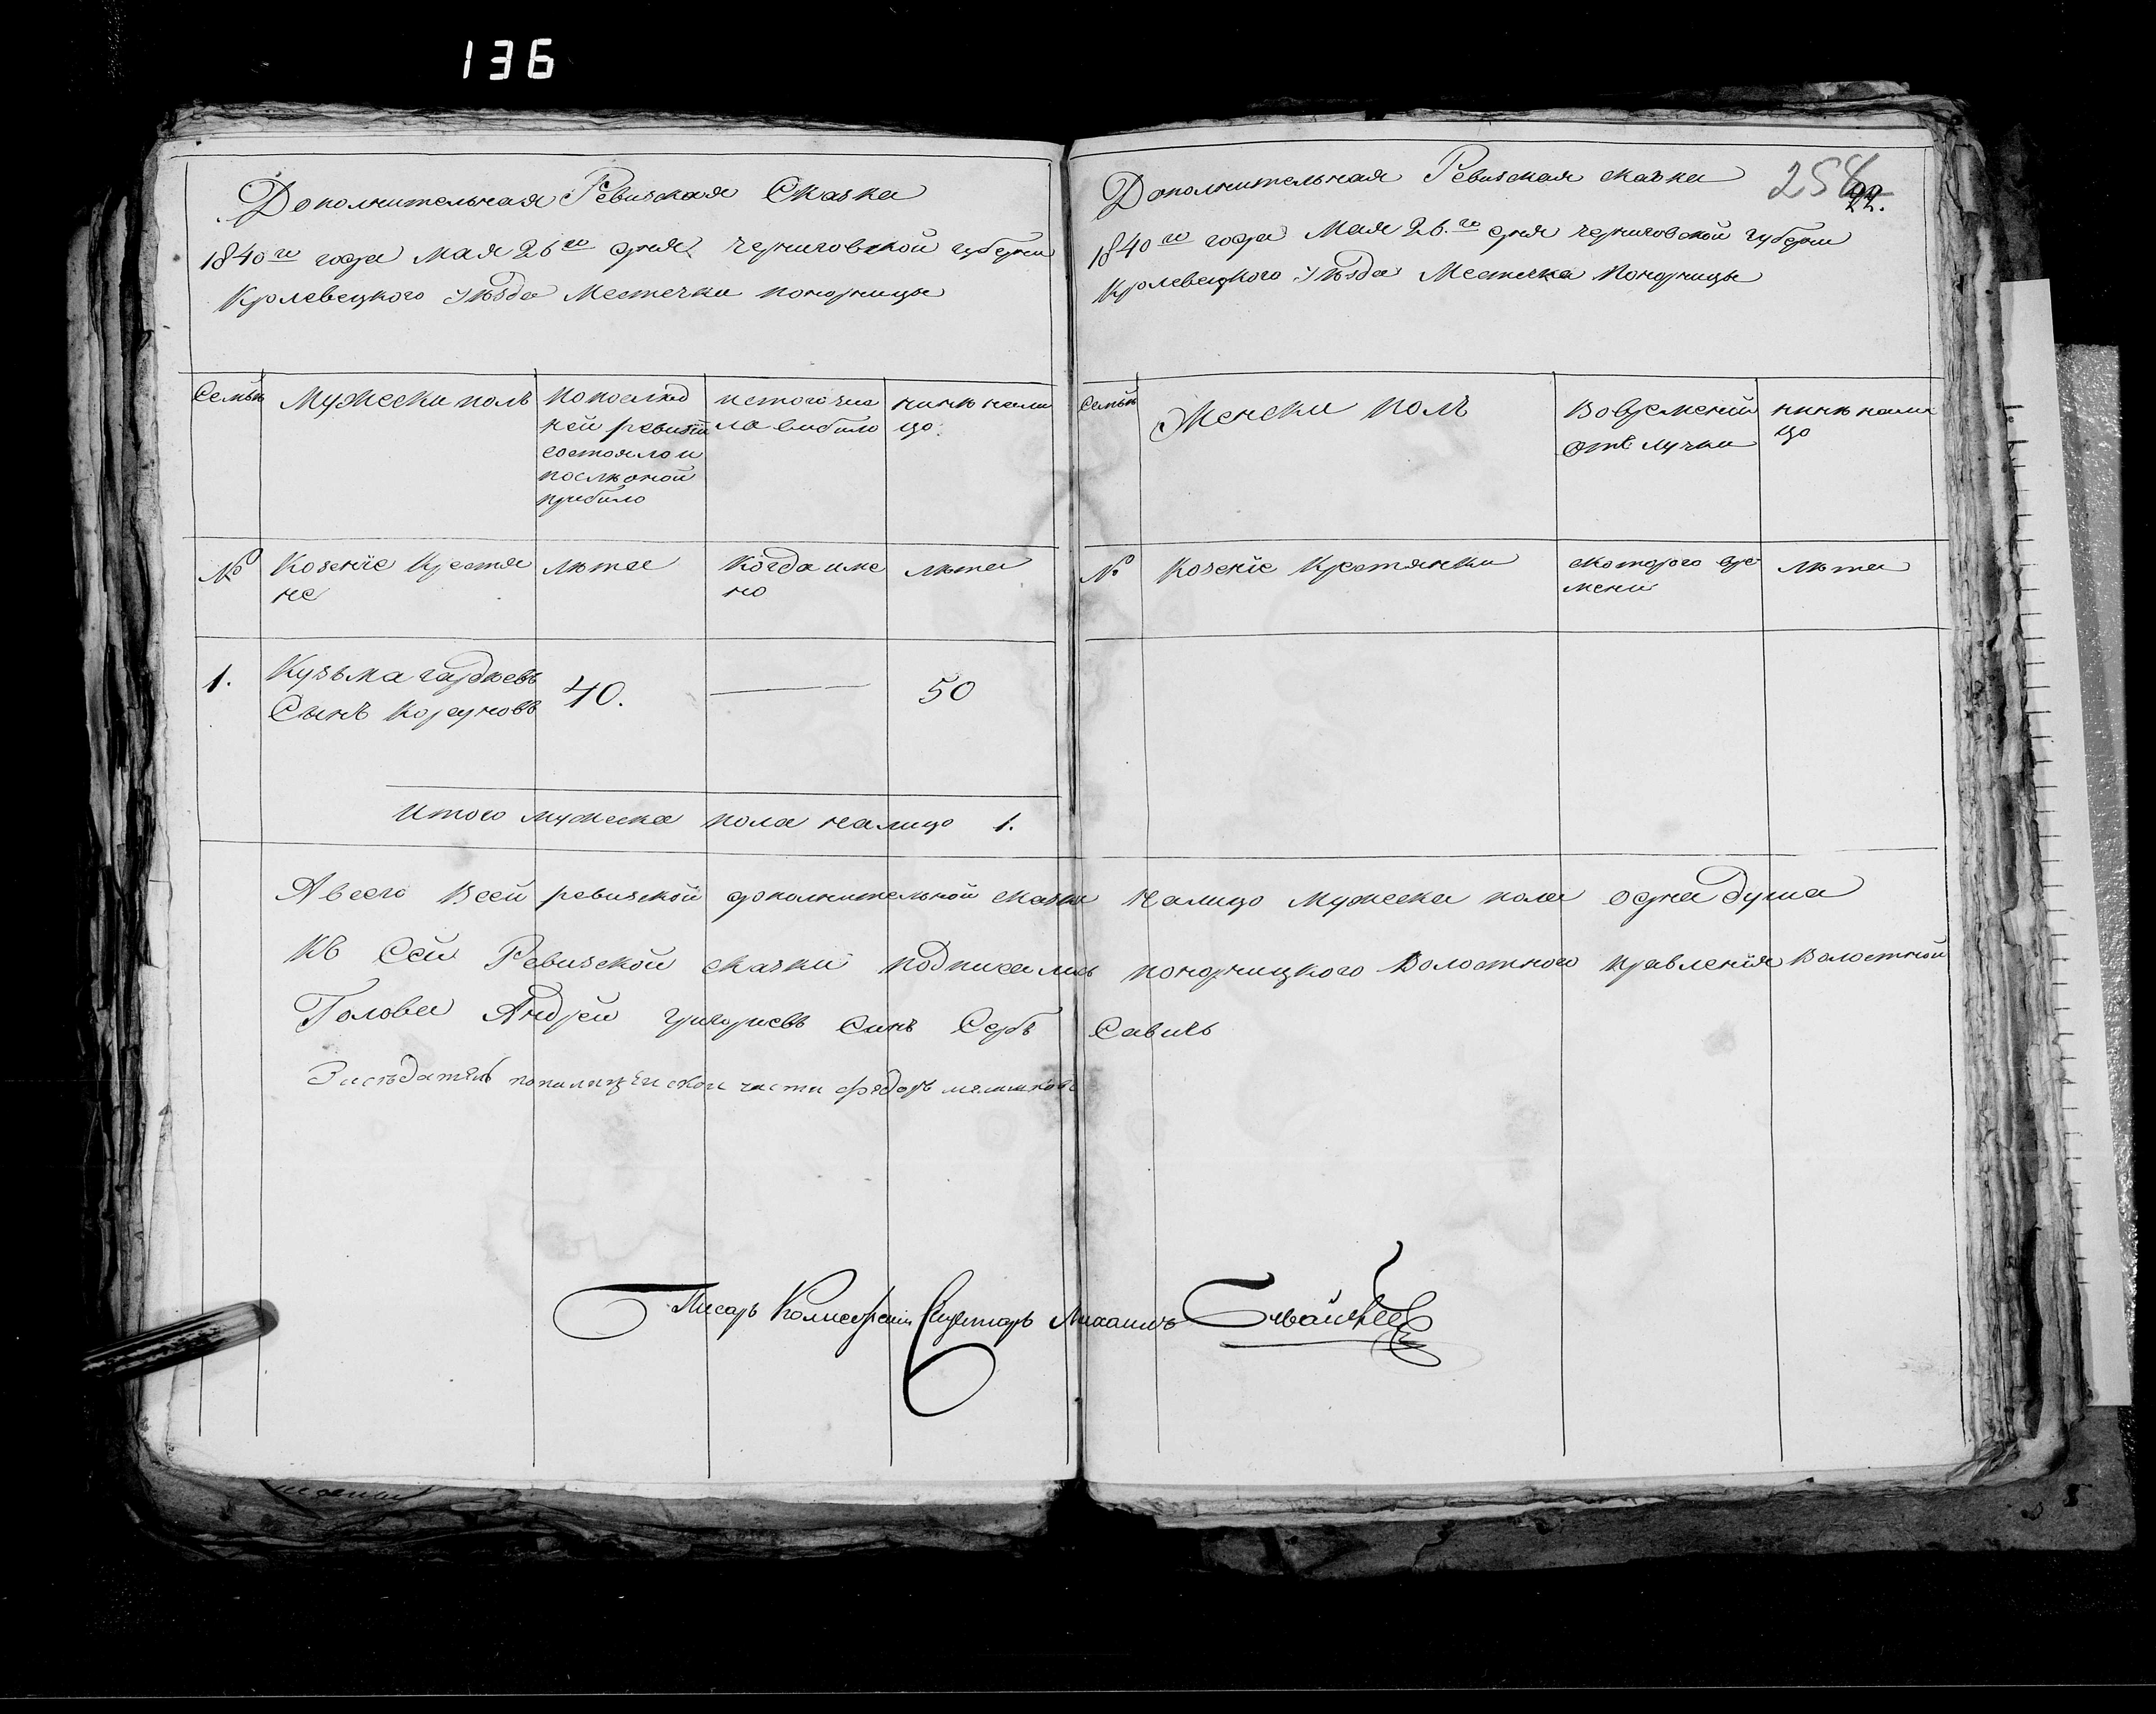 136
Дополнительная Ревизская Сказка
1840го года мая 26го дня черниговской губерни
Кролевецкого Уѣзда Местечка понорницы
Семьи
Мужески полъ
По послѣд
ней ревизіи
состояло и
послѣ оной
прибило
ис того чис
ла выбило
нинѣ нали
цо.
№
Козеніе Крестя
не
лѣта
Когда име
но
лѣта
1.
Кузьма гардѣевъ
Сынъ Корсуновъ
40.
50
Итого мужеска пола налицо 1.
Дополнительная Ревизская сказка
22.
1840го года Мая 26.го дня черниговской губерни
Кролевецкого Уѣзда Местечка Понорницы
Семьи
Женски полъ
Во времений
отлучки
нинѣ нали
цо
№
Козеніе Крестянки
скоторого вре
мени
лѣта
А всего Всей ревизской дополнительной сказки налицо мужеска пола одна душа
Къ Сей Ревизской сказки подписались понорницкого Волостного правленія Волостной
Голова Андрей григориевъ Синъ Сербъ Савичъ
Засѣдатель пополицейской части федоръ
Писарь Колиескій Секретарь Михаилъ